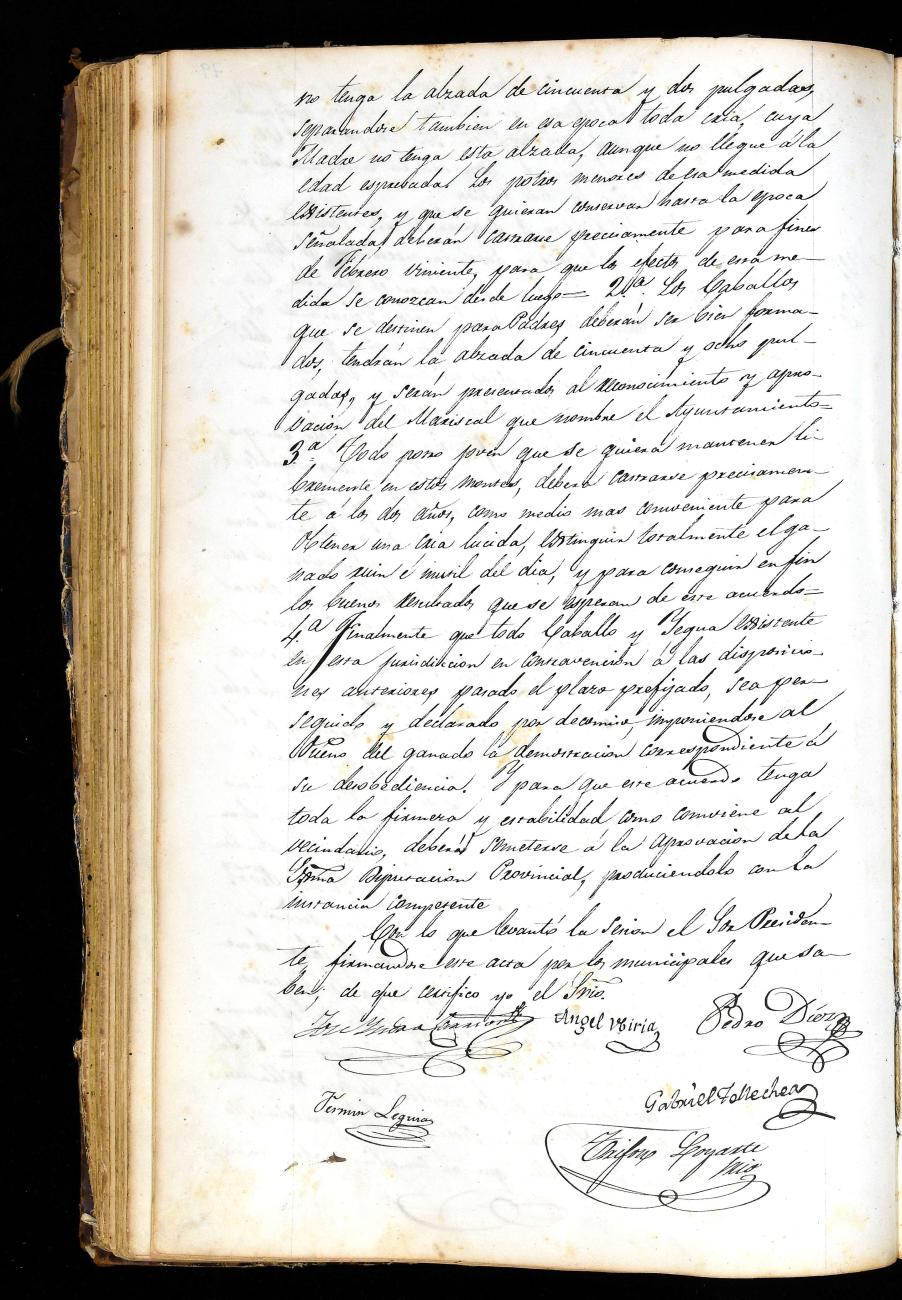 no tenga la alzada de cincuenta y dos pulgadas,
separandose tambien en esa epoca toda cria, cuya
Madre no tenga esta alzada, aunque no llegue á la
edad espresada. Los potros menores de esa medida
existentes, y que se quieran conservar hasta la epoca
señalada, deberán castrarse precisamente para fines
de Febrero viniente, para que los efectos de esta me-
dida se conozcan desde luego= 2ª. Los Caballos
que se destinen para Padres deberán ser bien forma-
dos, tendrán la alzada de cincuenta y ocho pul-
gadas, y serán presentados al reconocimiento y apro-
vacion del Mariscal que nombre el Ayuntamiento=
3ª Todo potro joven que se quiera mantener li-
bremente en estos montes, deberá castrarse precisamen-
te á los dos años, como medio mas conveniente para
obtener una cria lucida, extinguir totalmente el ga-
nado ruin é inutil del dia, y para conseguir en fin
los buenos resultados que se esperan de este acuerdo=
4ª Finalmente que todo Caballo y Yegua existente
en esta jurisdiccion en contravencion á las disposicio-
nes anteriores, pasado el plazo prefijado, sea per-
seguido y declarado por decomiso, imponiendose al
Dueño del ganado la demostracion correspondiente á
su desobediencia. Y para que este acuerdo tenga
toda la firmeza y estabilidad como conviene al
vecindario, deberá someterse á la aprovacion de la
Exma Diputacion Provincial, produciendolo con la
instancia competente
Con lo que levantó la sesion el Sor Presiden-
te, firmandose este acta por los municipales que sa-
ben; de que certifico yo el Srio.
Angel Viria Pedro Díez
Gabriel Tellechea
Fermin Leguia
Trifon Loyarte
Srio